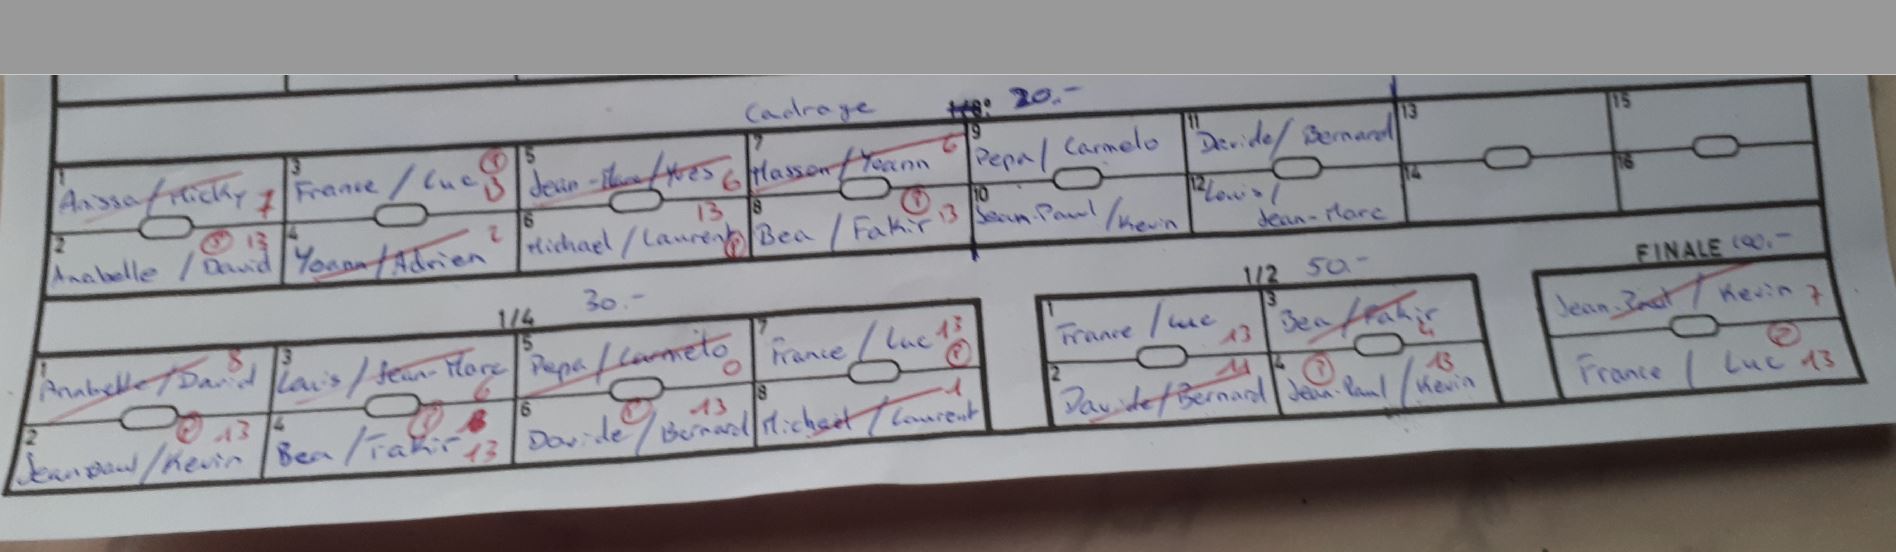 Cadrage 1/8: 20.-
1 Anissa / Micky 7
2 Anabelle / David 13
3 France / Luc 13
4 Yoann / Adrien 2
5 Jean-Marc / Yves 6
6 Michael / Laurent 13
7 Hassen / Yoann 6
8 Bea / Fakir 13
9 Pepa / Carmelo
10 Jean-Paul / Kevin
11 Davide / Bernard
12 Louis / Jean-Marc
13
14
15
16
1/4 30.-
1 Anabelle / David 8
2 Jean Paul / Kevin 13
3 Louis / Jean-Marc 6
4 Bea / Fakir 13
5 Pepa / Carmelo 0
6 Davide / Bernard 13
7 France / Luc 13
8 Michael / Laurent 1
1/2 50.-
1 France / Luc 13
2 Davide / Bernard 11
3 Bea / Fakir
4 Jean-Paul / Kevin 13
FINALE 100.-
Jean-Paul / Kevin 7
France / Luc 13